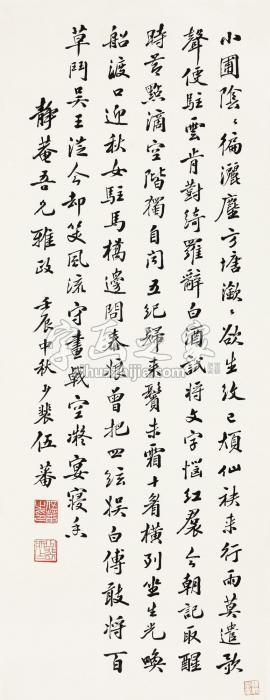 小圃陰陰徧灑塵方塘瀲瀲欲生紋已煩仙袂來行雨莫遣歌
聲便駐雲肯對綺羅辭白酒試將文字惱紅裙今朝記取醒
時節點滴空階獨自聞五紀歸來鬢未霜十眉橫列坐生光喚
船渡口迎秋女駐馬橋邊問泰娘曾把四絃娛白傅敢將百
草鬥吳王從今却笑風流守畫戟空凝宴寢香
靜菴吾兄雅政 壬辰中秋少裴伍蕃